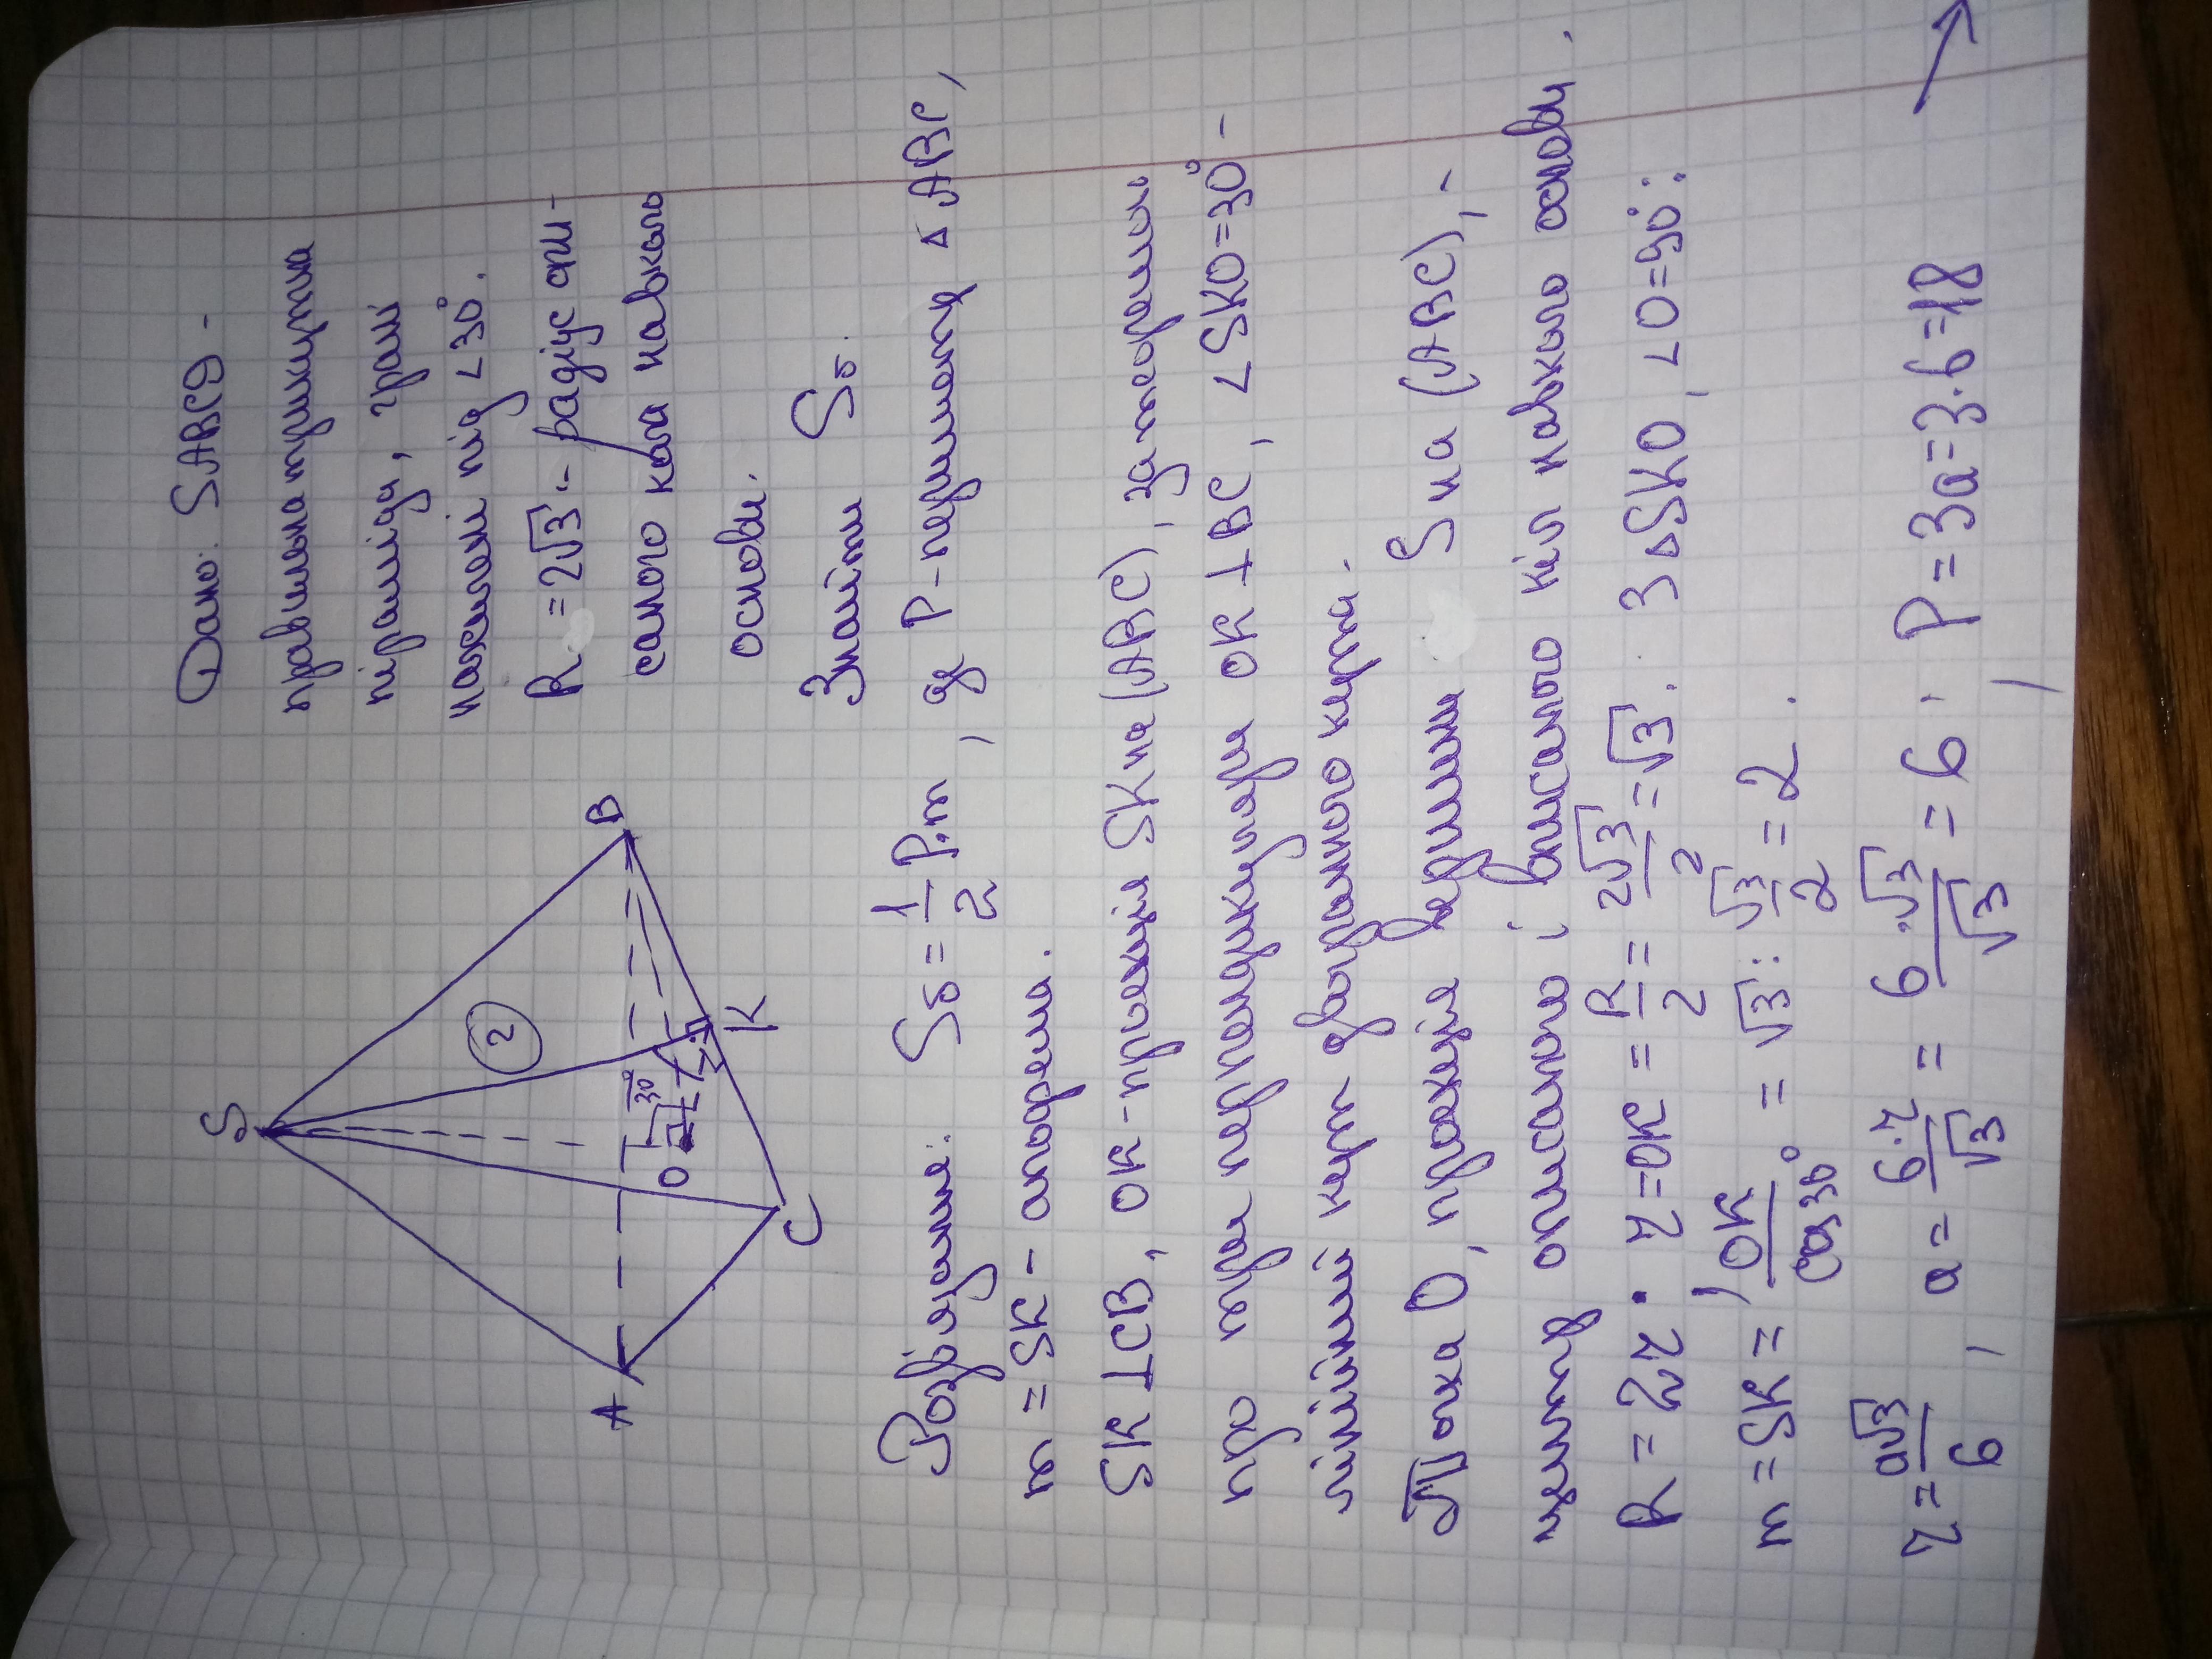 S
A
B
C
O
K
30°
2
Дано: SABCD -
правильна трикутна
піраміда, грані
нахилені під ∠30°.
R = 2√3 - радіус опи-
саного кола навколо
основи.
Знайти Sб.
Розв'язання: Sб = 1/2 P·m, де P - периметр ΔABC,
m = SK - апофема.
SK ⊥ CB, OK - проекція SK на (ABC), за теоремою
про три перпендикуляри OK ⊥ BC, ∠SKO = 30° -
лінійний кут двогранного кута.
Точка O, проекція вершини S на (ABC), -
центр описаного і вписаного кіл навколо основи.
R = 2r. r = OK = R/2 = 2√3/2 = √3. З ΔSKO, ∠O = 90°:
m = SK = OK/cos30° = √3 : √3/2 = 2.
r = a√3/6, a = 6·r/√3 = 6·√3/√3 = 6. P = 3a = 3·6 = 18